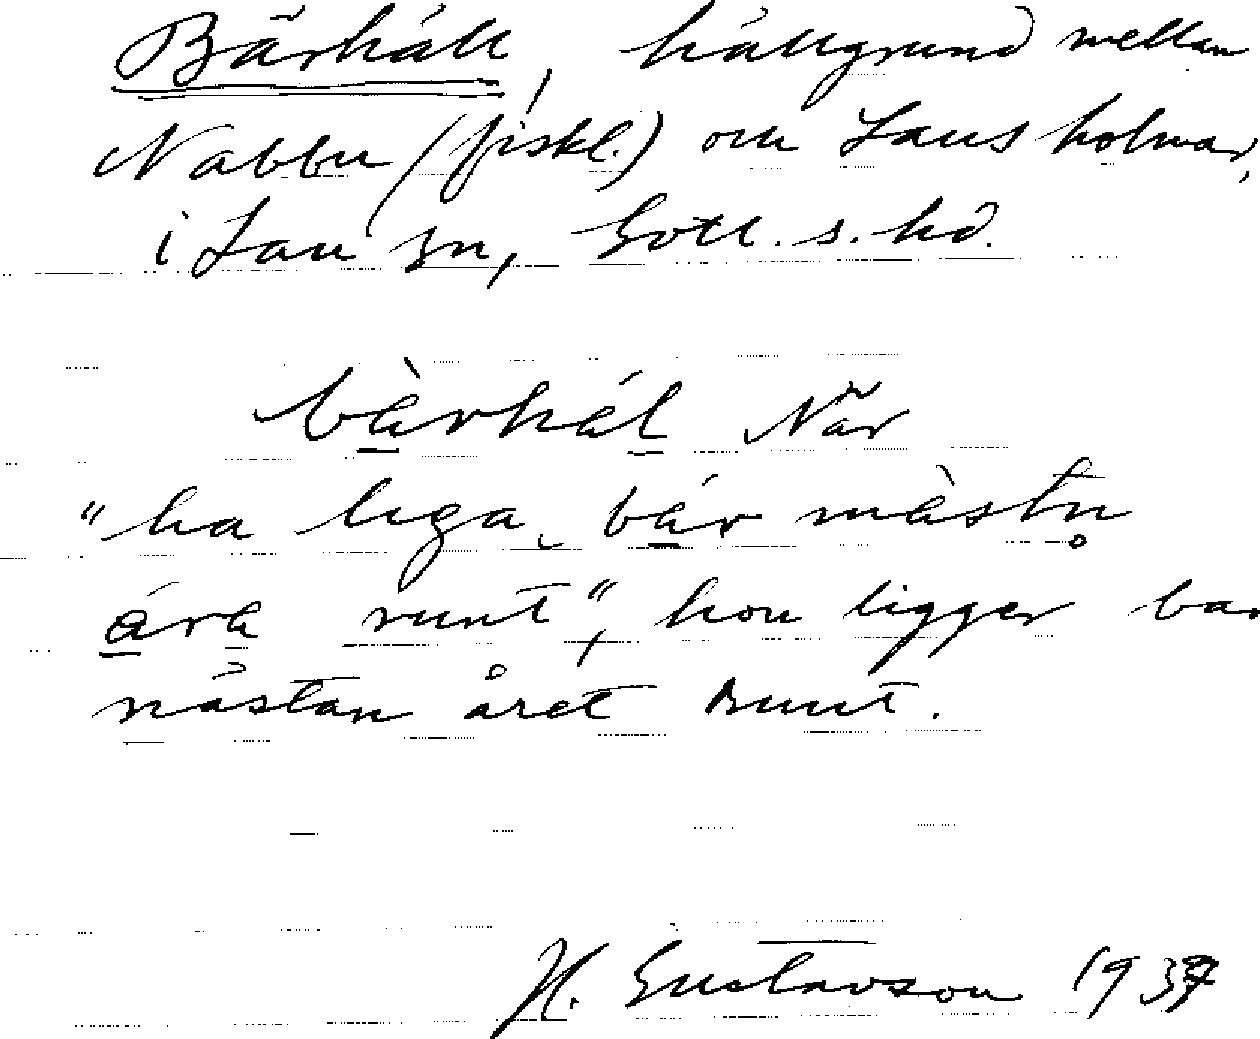 Bärhäll, hällgrund mellan
Nabbu (fiskl.) och Laus holmar,
i Lau sn, Gotl. s. hd.
bàrhál När
"ha liga, bár màstn̥
ára runt", hon ligger bar
nästan året runt.
H. Gustavson 1937